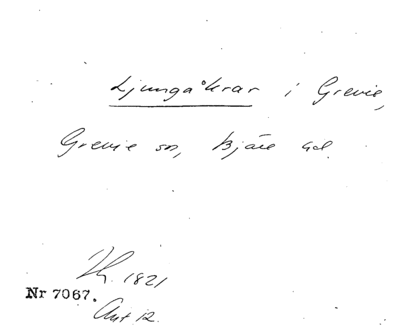 Ljungåkrar i Grevie,
Grevie sn, Bjäre hd.
Th. 1821
Nr 7067.
Ant 12.